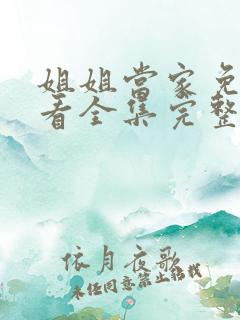 姐姐當家免
看全集完整
依月夜歌
未经同意禁止转载